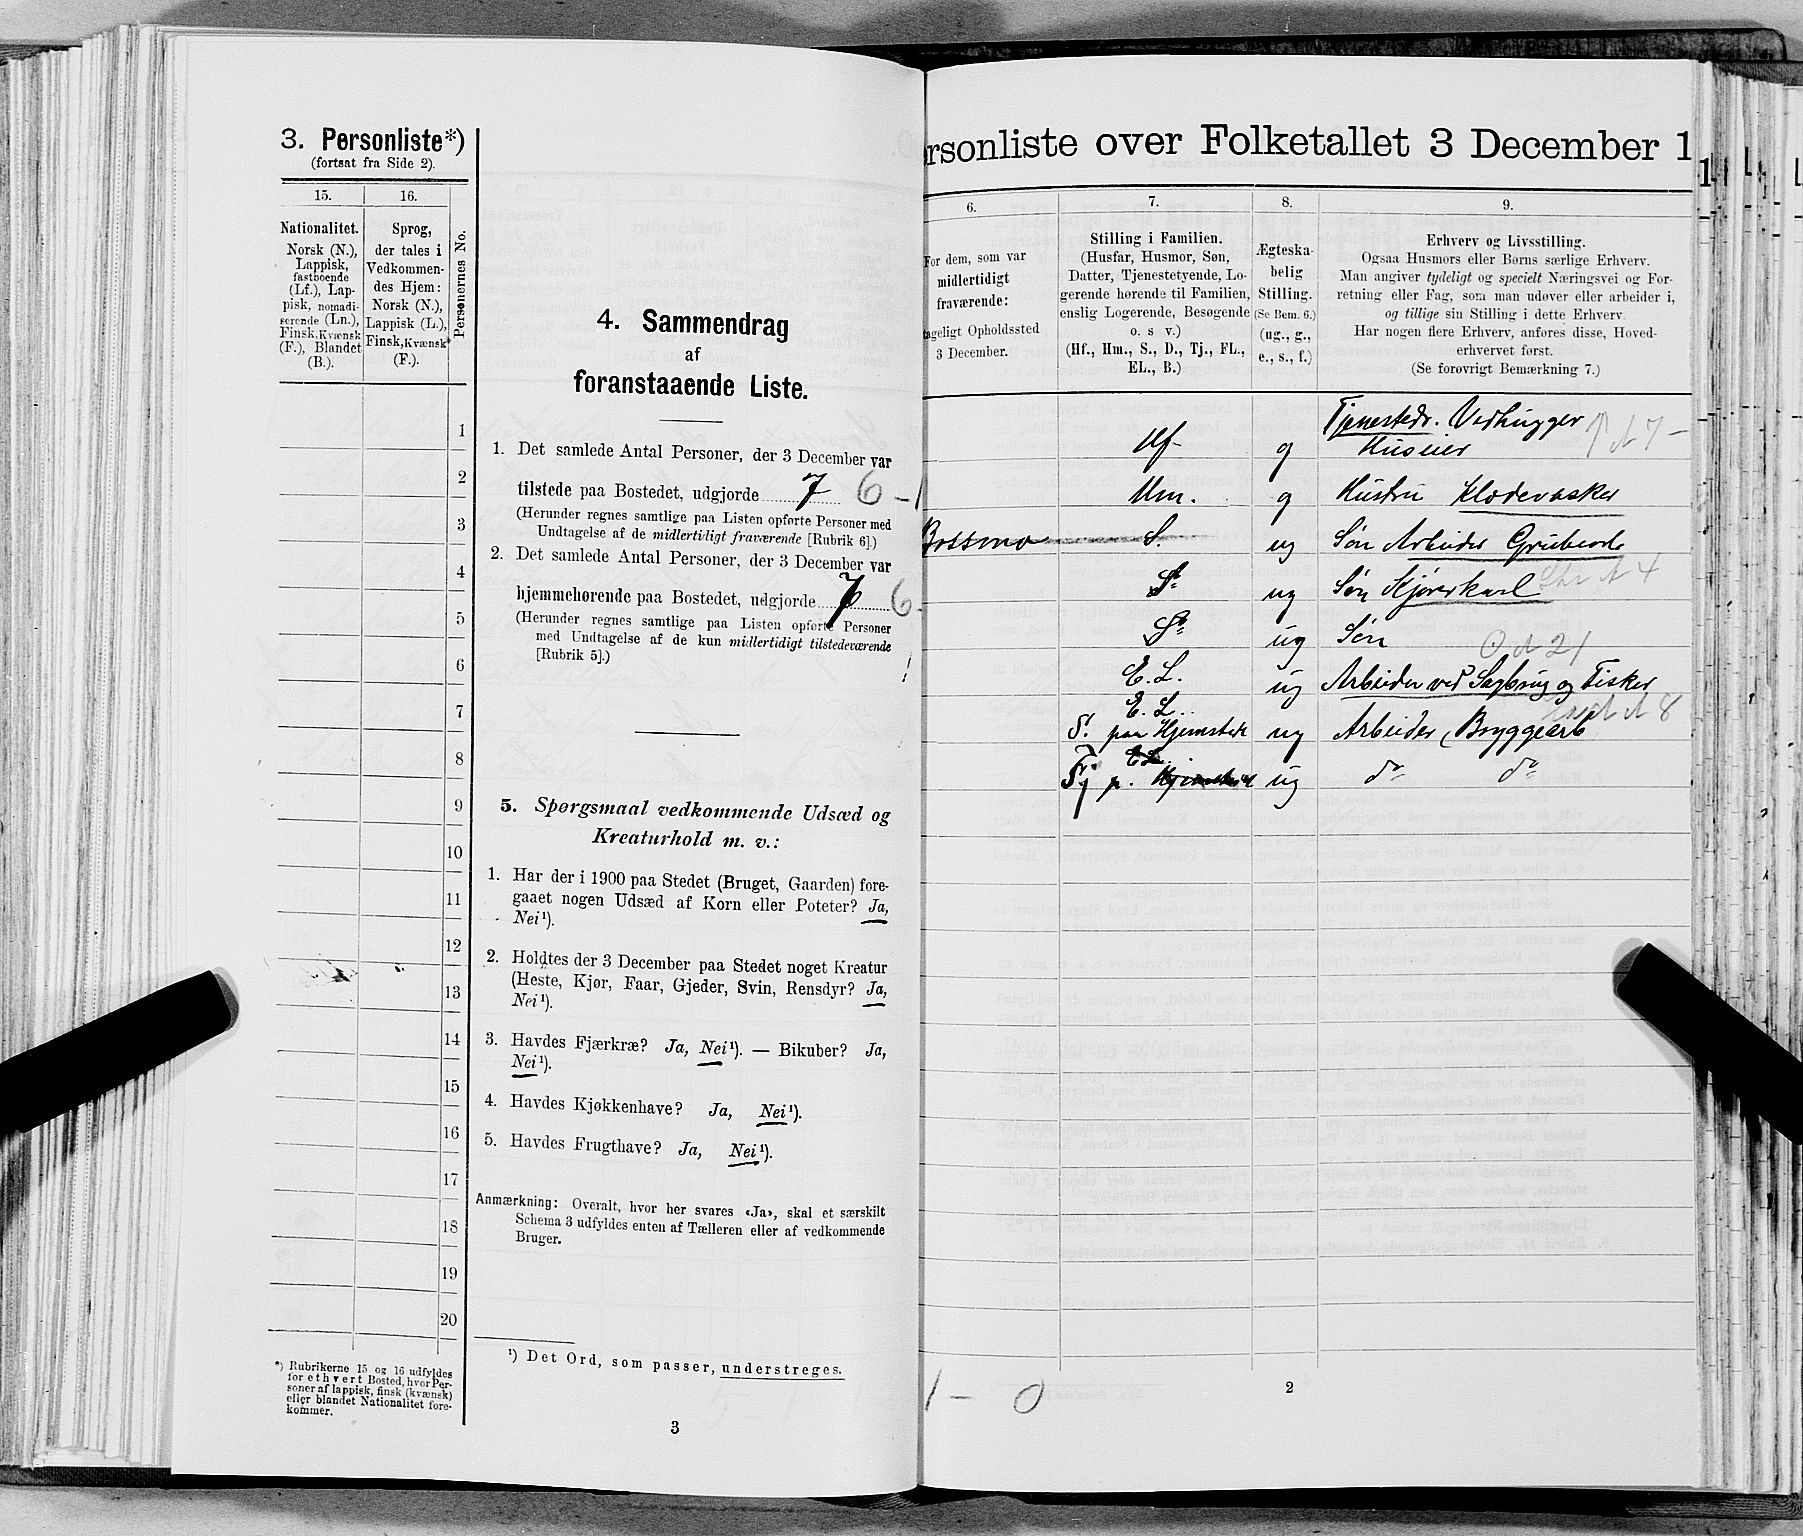 3. Personliste*)
(fortsat fra Side 2).
15.
16.
Personernes No.
Nationalitet.
Norsk (N.),
Lappisk,
fastboende
(Lf.), Lap-
pisk, nomadi-
serende (Ln.),
Finsk, Kvænsk
(F.), Blandet
(B.).
Sprog,
der tales i
Vedkommen-
des Hjem:
Norsk (N.),
Lappisk (L.),
Finsk, Kvænsk
(F.).
1
2
3
4
5
6
7
8
9
10
11
12
13
14
15
16
17
18
19
20
*) Rubrikerne 15 og 16 udfyldes
for ethvert Bosted, hvor Per-
soner af lappisk, finsk (kvænsk)
eller blandet Nationalitet fore-
kommer.
4. Sammendrag
af
foranstaaende Liste.
1. Det samlede Antal Personer, der 3 December var
tilstede paa Bostedet, udgjorde 7 6-1
(Herunder regnes samtlige paa Listen opførte Personer med
Undtagelse af de midlertidigt fraværende [Rubrik 6].)
2. Det samlede Antal Personer, der 3 December var
hjemmehørende paa Bostedet, udgjorde 6-
(Herunder regnes samtlige paa Listen opførte Personer
med Undtagelse af de kun midlertidigt tilstedeværende
[Rubrik 5].)
5. Spørgsmaal vedkommende Udsæd og
Kreaturhold m. v.:
1. Har der i 1900 paa Stedet (Bruget, Gaarden) fore-
gaaet nogen Udsæd af Korn eller Poteter? Ja,
Nei¹).
2. Holdtes der 3 December paa Stedet noget Kreatur
(Heste, Kjør, Faar, Gjeder, Svin, Rensdyr? Ja,
Nei¹).
3. Havdes Fjærkræ? Ja, Nei¹). — Bikuber? Ja,
Nei¹).
4. Havdes Kjøkkenhave? Ja, Nei¹).
5. Havdes Frugthave? Ja, Nei¹).
Anmærkning: Overalt, hvor her svares «Ja», skal et særskilt
Schema 3 udfyldes enten af Tælleren eller af vedkommende
Bruger.
¹) Det Ord, som passer, understreges.
3
rsonliste over Folketallet 3 December 1
6.
For dem, som var
midlertidigt
fraværende:
tageligt Opholdssted
3 December.
7.
Stilling i Familien.
(Husfar, Husmor, Søn,
Datter, Tjenestetyende, Lo-
gerende hørende til Familien,
enslig Logerende, Besøgende
o. s v.)
(Hf., Hm., S., D., Tj., FL.,
EL., B.)
8.
Ægteska-
belig
Stilling.
(Se Bem. 6.)
(ug., g.,
e., s., f.)
9.
Erhverv og Livsstilling.
Ogsaa Husmors eller Børns særlige Erhverv.
Man angiver tydeligt og specielt Næringsvei og For-
retning eller Fag, som man udøver eller arbeider i,
og tillige sin Stilling i dette Erhverv.
Har nogen flere Erhverv, anføres disse, Hoved-
erhvervet først.
(Se forøvrigt Bemærkning 7.)
Tjenestedr. Vedhugger
Hf g Huseier
Hm. g Hustru Klædevasker
Bossmo S. ug Søn Arbeider Grubearb
S. ug Søn Kjørerkarl
S. ug Søn
E. L. ug Arbeider ved Sagbrug og Fisker
E. L.
S. paa Hjemsted ug Arbeider, Bryggearb
E L
Tj p. ug do do
1 - 0
2